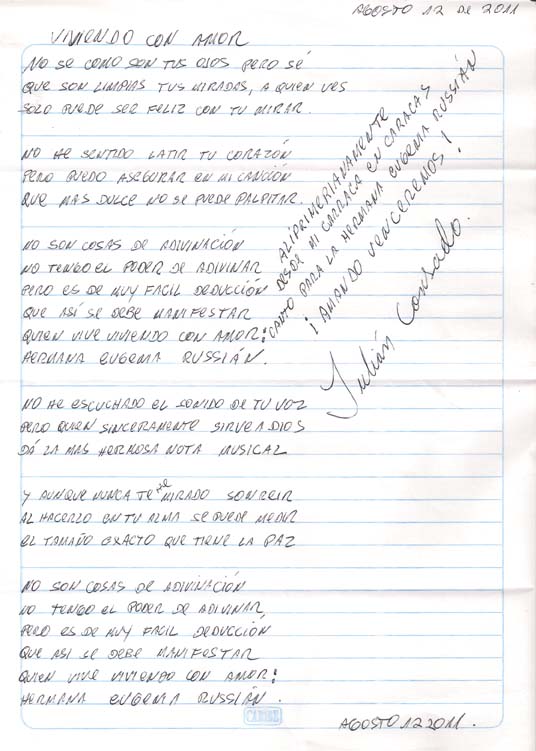 AGOSTO 12 DE 2011
VIVIENDO CON AMOR
NO SE COMO SON TUS OJOS PERO SÉ
QUE SON LIMPIAS TUS MIRADAS, A QUIEN VES
SOLO PUEDE SER FELIZ CON TU MIRAR.
NO HE SENTIDO LATIR TU CORAZÓN
PERO PUEDO ASEGURAR EN MI CANCIÓN
QUE MAS DULCE NO SE PUEDE PALPITAR.
NO SON COSAS DE ADIVINACIÓN
NO TENGO EL PODER DE ADIVINAR
PERO ES DE MUY FACIL DEDUCCIÓN
QUE ASÍ SE DEBE MANIFESTAR
QUIEN VIVE VIVIENDO CON AMOR:
HERMANA EUGENIA RUSSIÁN.
ALIPRIMERIANAMENTE
DESDE MI CARRACA EN CARACAS
CANTO PARA LA HERMANA EUGENIA RUSSIÁN
¡AMANDO VENCEREMOS!
Julián Conrado.
NO HE ESCUCHADO EL SONIDO DE TU VOZ
PERO QUIEN SINCERAMENTE SIRVE A DIOS
DÁ LA MAS HERMOSA NOTA MUSICAL
Y AUNQUE NUNCA TE HE MIRADO SONREIR
AL HACERLO EN TU ALMA SE PUEDE MEDIR
EL TAMAÑO EXACTO QUE TIENE LA PAZ
NO SON COSAS DE ADIVINACIÓN
NO TENGO EL PODER DE ADIVINAR,
PERO ES DE MUY FACIL DEDUCCIÓN
QUE ASI SE DEBE MANIFESTAR
QUIEN VIVE VIVIENDO CON AMOR:
HERMANA EUGENIA RUSSIÁN.
CARIBE
AGOSTO 12 2011.